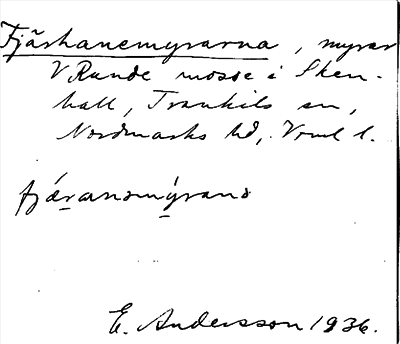 Fjärhanemyrarna, myrar
V Runde mosse i Sken-
hall, Trankils sn,
Nordmarks hd, Vrml l.
fjæranomýrana
E. Andersson 1936.